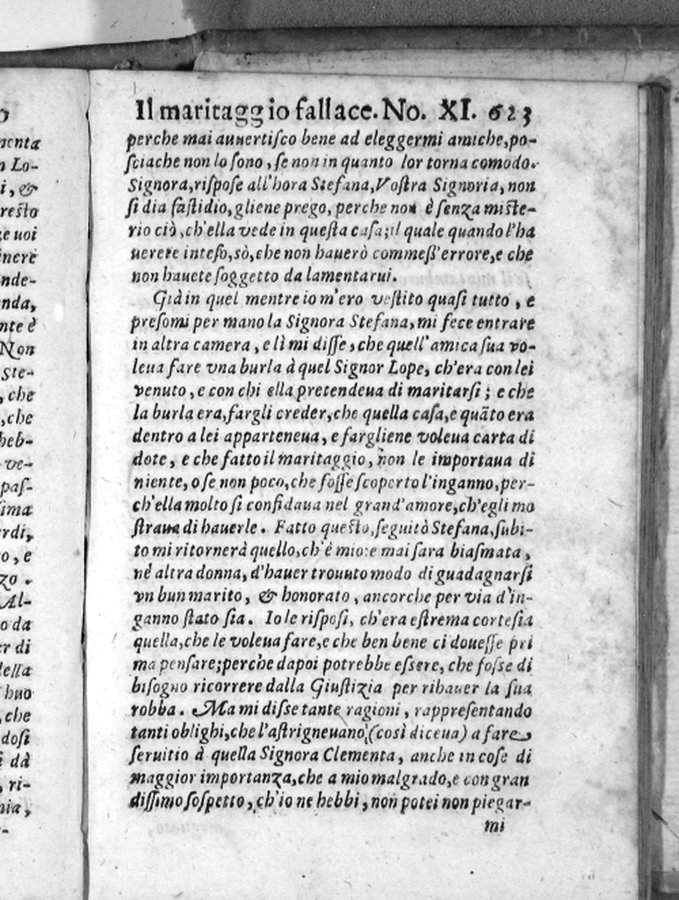 Il maritaggio fallace. No. XI. 623
perche mai auuertisco bene ad eleggermi amiche,po-
sciache non lo sono, se non in quanto lor torna comodo.
Signora,rispose all'hora Stefana,Vostra Signoria, non
si dia fastidio,gliene prego, perche non è senza miste-
rio ciò, ch'ella vede in questa casa;il quale quando l'ha
uerere inteso,sò,che non hauerò commess'errore,e che
non hauete soggetto da lamentarui.
Già in quel mentre io m'ero vestito quasi tutto, e
presomi per mano la Signora Stefana,mi fece entrare
in altra camera, e lì mi disse, che quell'amica sua vo-
leua fare vna burla à quel Signor Lope, ch'era con lei
venuto, e con chi ella pretendeua di maritarsi; e che
la burla era,fargli creder,che quella casa,e quāto era
dentro a lei apparteneua, e fargliene voleua carta di
dote, e che fatto il maritaggio, non le importaua di
niente, o se non poco,che fosse scoperto l'inganno,per-
ch'ella molto si confidaua nel grand'amore,ch'egli mo
straua di hauerle. Fatto questo,seguitò Stefana,subi-
to mi ritornerà quello,ch'è mio:e mai sara biasmata,
nè altra donna, d'hauer trouuto modo di guadagnarsi
vn bun marito, & honorato, ancorche per via d'in-
ganno stato sia. Io le risposi, ch'era estrema cortesia
quella,che le voleua fare,e che ben bene ci douesse pri
ma pensare;perche dapoi potrebbe essere, che fosse di
bisogno ricorrere dalla Giustizia per rihauer la sua
robba. Ma mi disse tante ragioni, rappresentando
tanti oblighi,che l'astrigneuano,(così diceua) a fare
seruitio à quella Signora Clementa, anche in cose di
maggior importanza,che a mio malgrado,e con gran
dissimo sospetto, ch'io ne hebbi, non potei non piegar-
mi